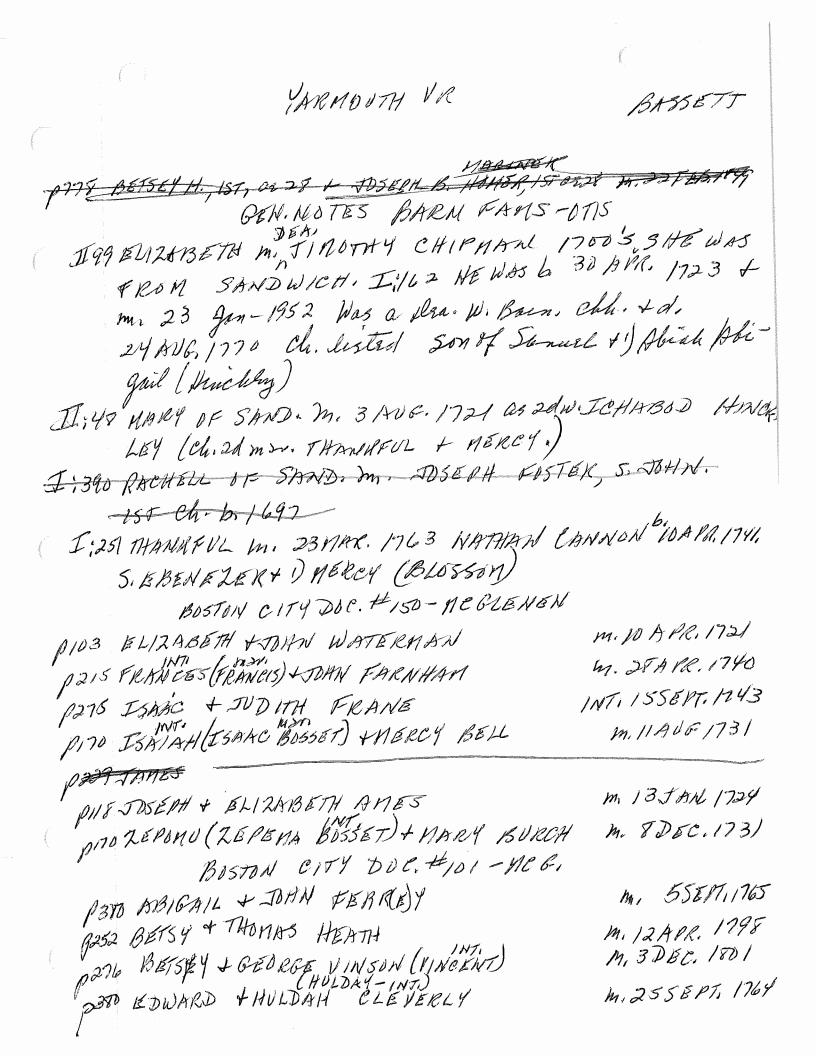 YARMOUTH VR BASSETT
MARINER
p778 BETSEY H., 1ST, ae 28 + JOSEPH B. HOMER, 1ST ae 28 m. 22 FEB. 1849
GEN. NOTES BARN FAMS-OTIS
DEA.
II 99 ELIZABETH m. TIMOTHY CHIPMAN 1700's, SHE WAS
FROM SANDWICH. I:162 HE WAS b 30 APR. 1723 +
m. 23 Jan-1952 Was a Dea. W. Barn. chh. + d.
24 AUG. 1770 Ch. listed son of Samuel + 1) Abiah Abi-
gail (Hinckley)
II:48 MARY OF SAND. m. 3 AUG. 1721 as 2d w. ICHABOD HINCK-
LEY (Ch. 2d mar. THANKFUL + MERCY.)
I:390 RACHELL OF SAND. m. JOSEPH FOSTER, S. JOHN.
1ST Ch. b. 1697
I:251 THANKFUL m. 23 MAR. 1763 NATHAN CANNON b. 10 APR. 1741,
S. EBENEZER + 1) MERCY (BLOSSOM)
BOSTON CITY DOC. #150-MCGLENEN
p103 ELIZABETH + JOHN WATERMAN m. 10 APR. 1721
INT. mar.
p215 FRANCES (FRANCIS) + JOHN FARNHAM m. 28 APR. 1740
p275 ISAAC + JUDITH FRANE INT. 15 SEPT. 1743
INT. mar.
p170 ISAIAH (ISAAC BOSSET) + MERCY BELL m. 11 AUG 1731
p229 JAMES
p118 JOSEPH + ELIZABETH AMES m. 13 JAN 1724
INT.
p170 ZEPOMU (ZEPEMA BOSSET) + MARY BURCH m. 8 DEC. 1731
BOSTON CITY DOC. #101-MCG.
p380 ABIGAIL + JOHN FERR(E)Y m. 5 SEPT. 1765
p252 BETSY + THOMAS HEATH m. 12 APR. 1798
INT.
p276 BETSEY + GEORGE VINSON (VINCENT) m. 3 DEC. 1801
(HULDAY-INT.)
p380 EDWARD + HULDAH CLEVERLY m. 25 SEPT. 1764